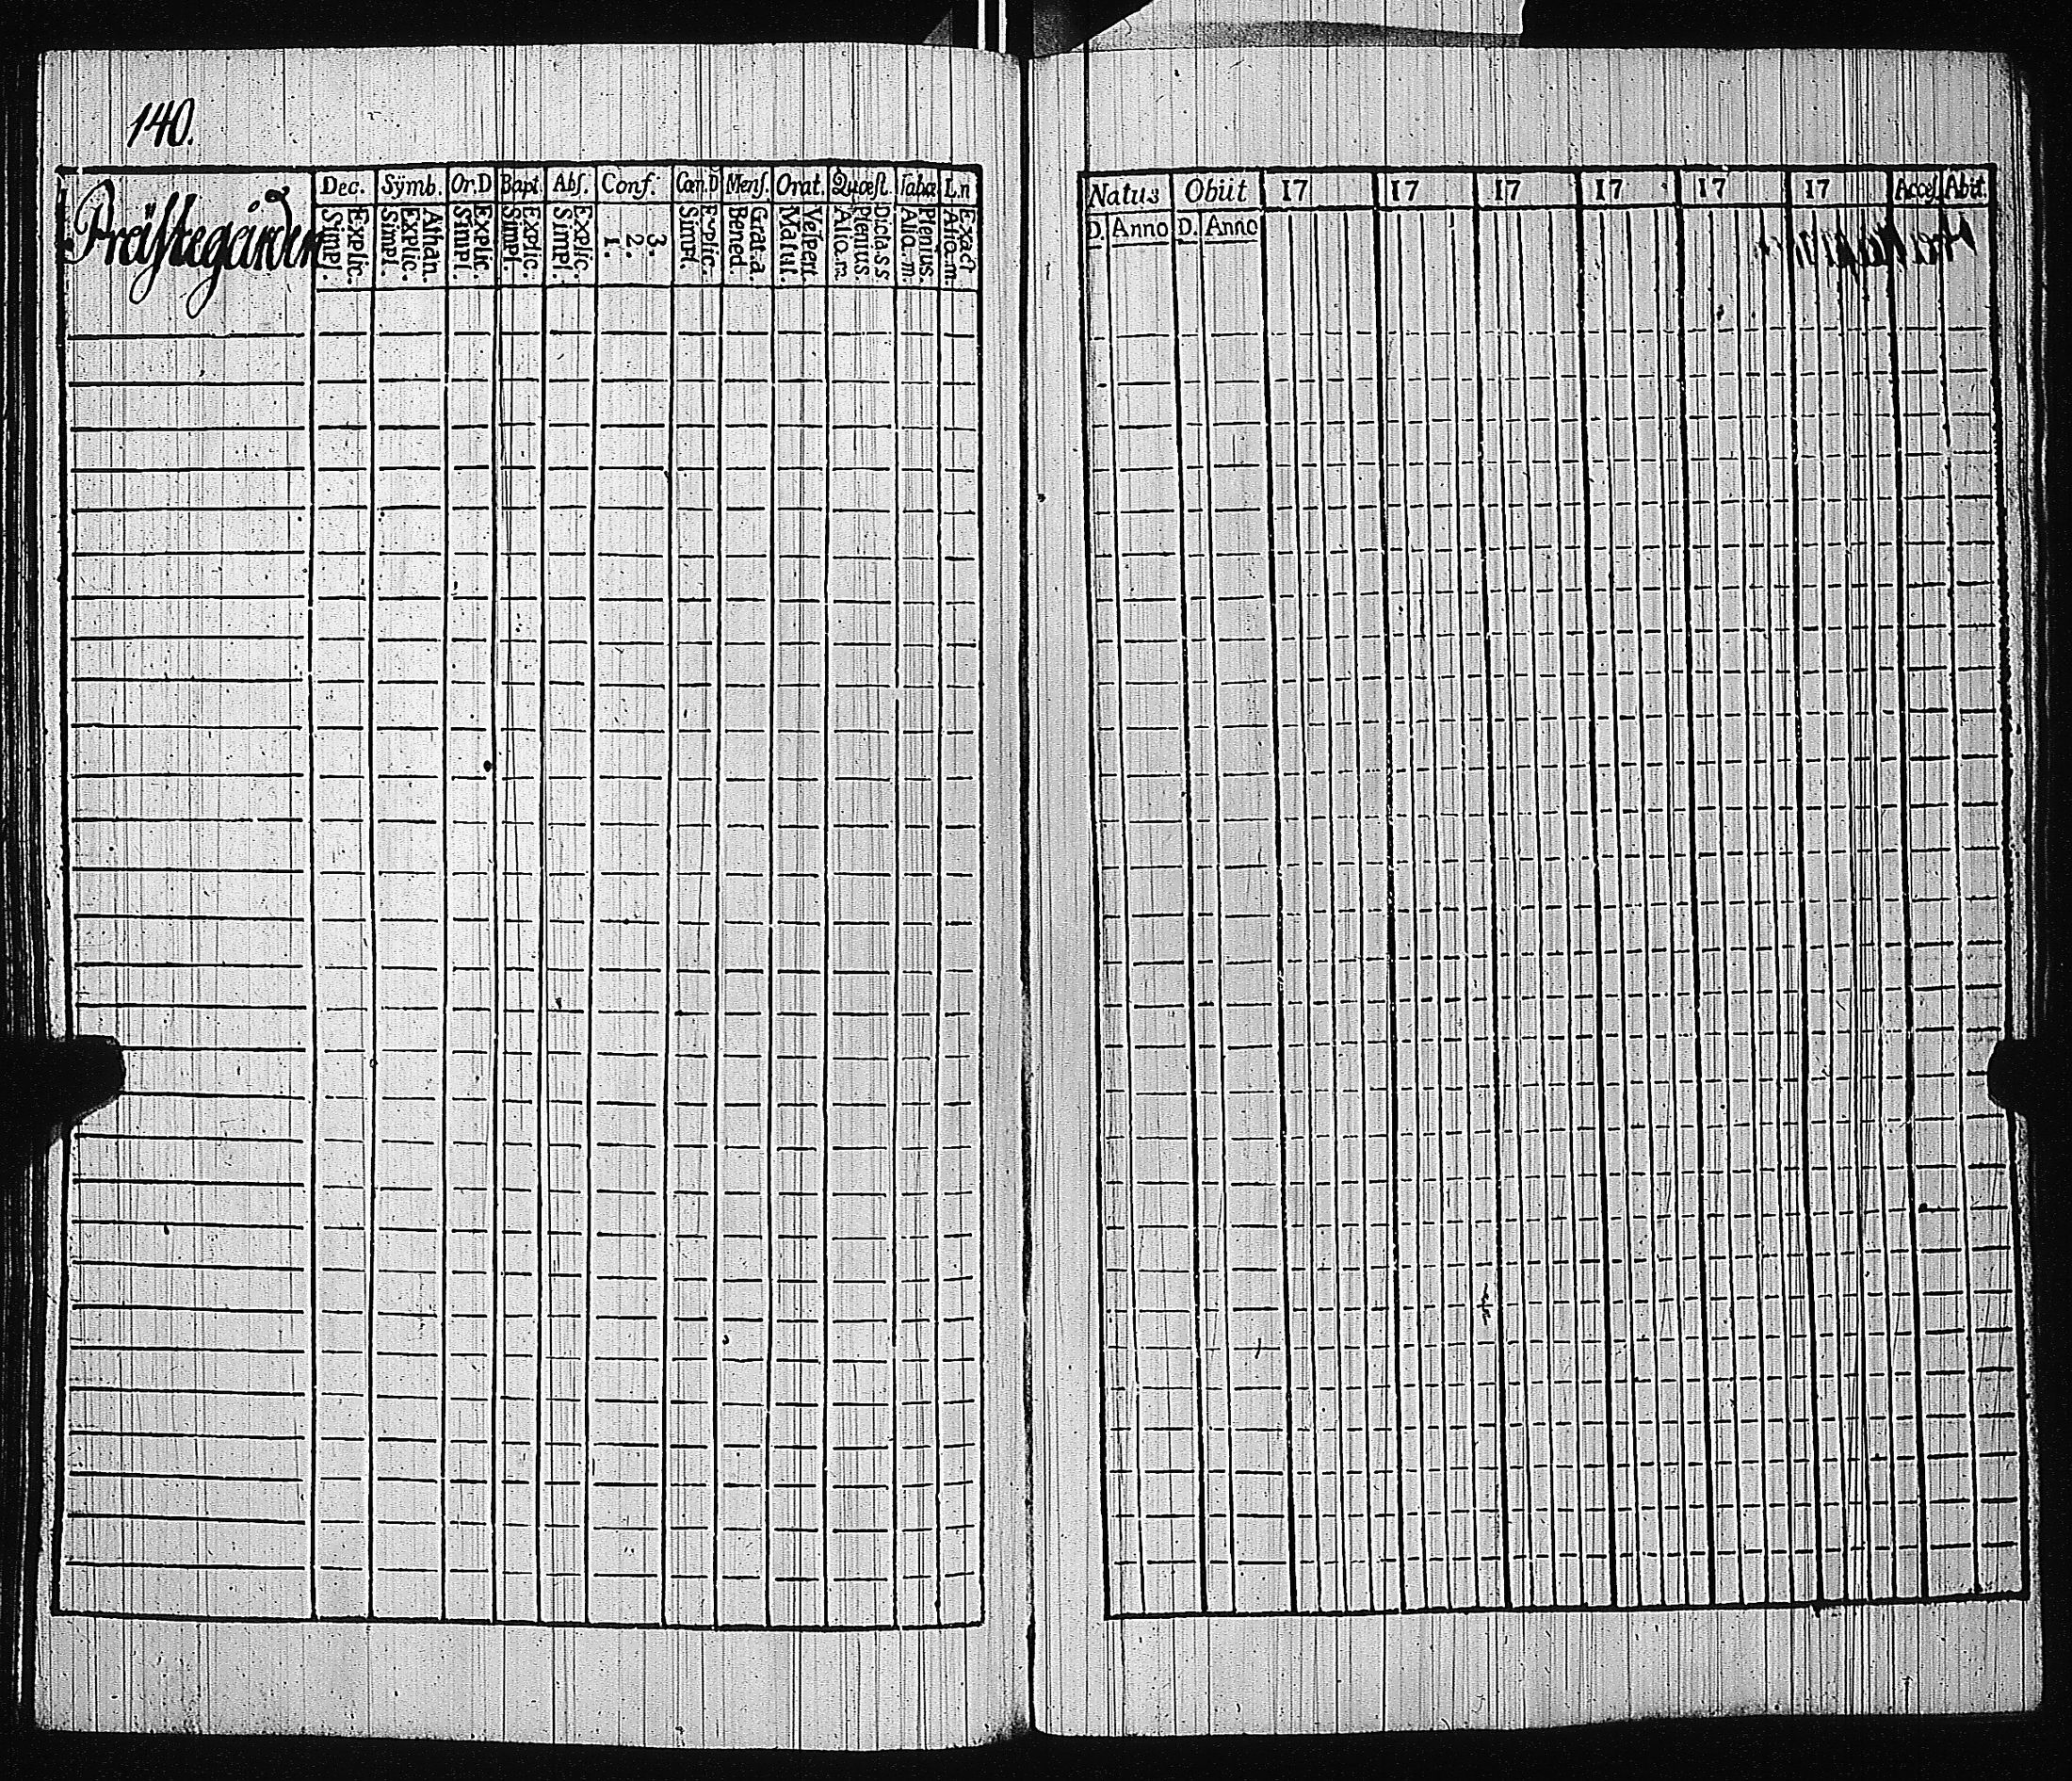 140.
Dec. Sÿmb. Or.D Bapt. Abſ. Conf. Can.D Menſ. Orat. Quæſt. Taba L.n
Präſtegården
Explic. Simpl. Athan. Explic. Simpl. Explic. Simpl. Explic. Simpl. Explic. Simpl. 3. 2. 1. Explic. Simpl. Grat.a. Bened. Veſpert. Matut. Dicta.s s Plenius. Alio.m. Plenius. Alio.m. Exact Alio.m.
Natus Obiit 17 17 17 17 17 17 Acceſ. Abit
D. Anno D. Anno